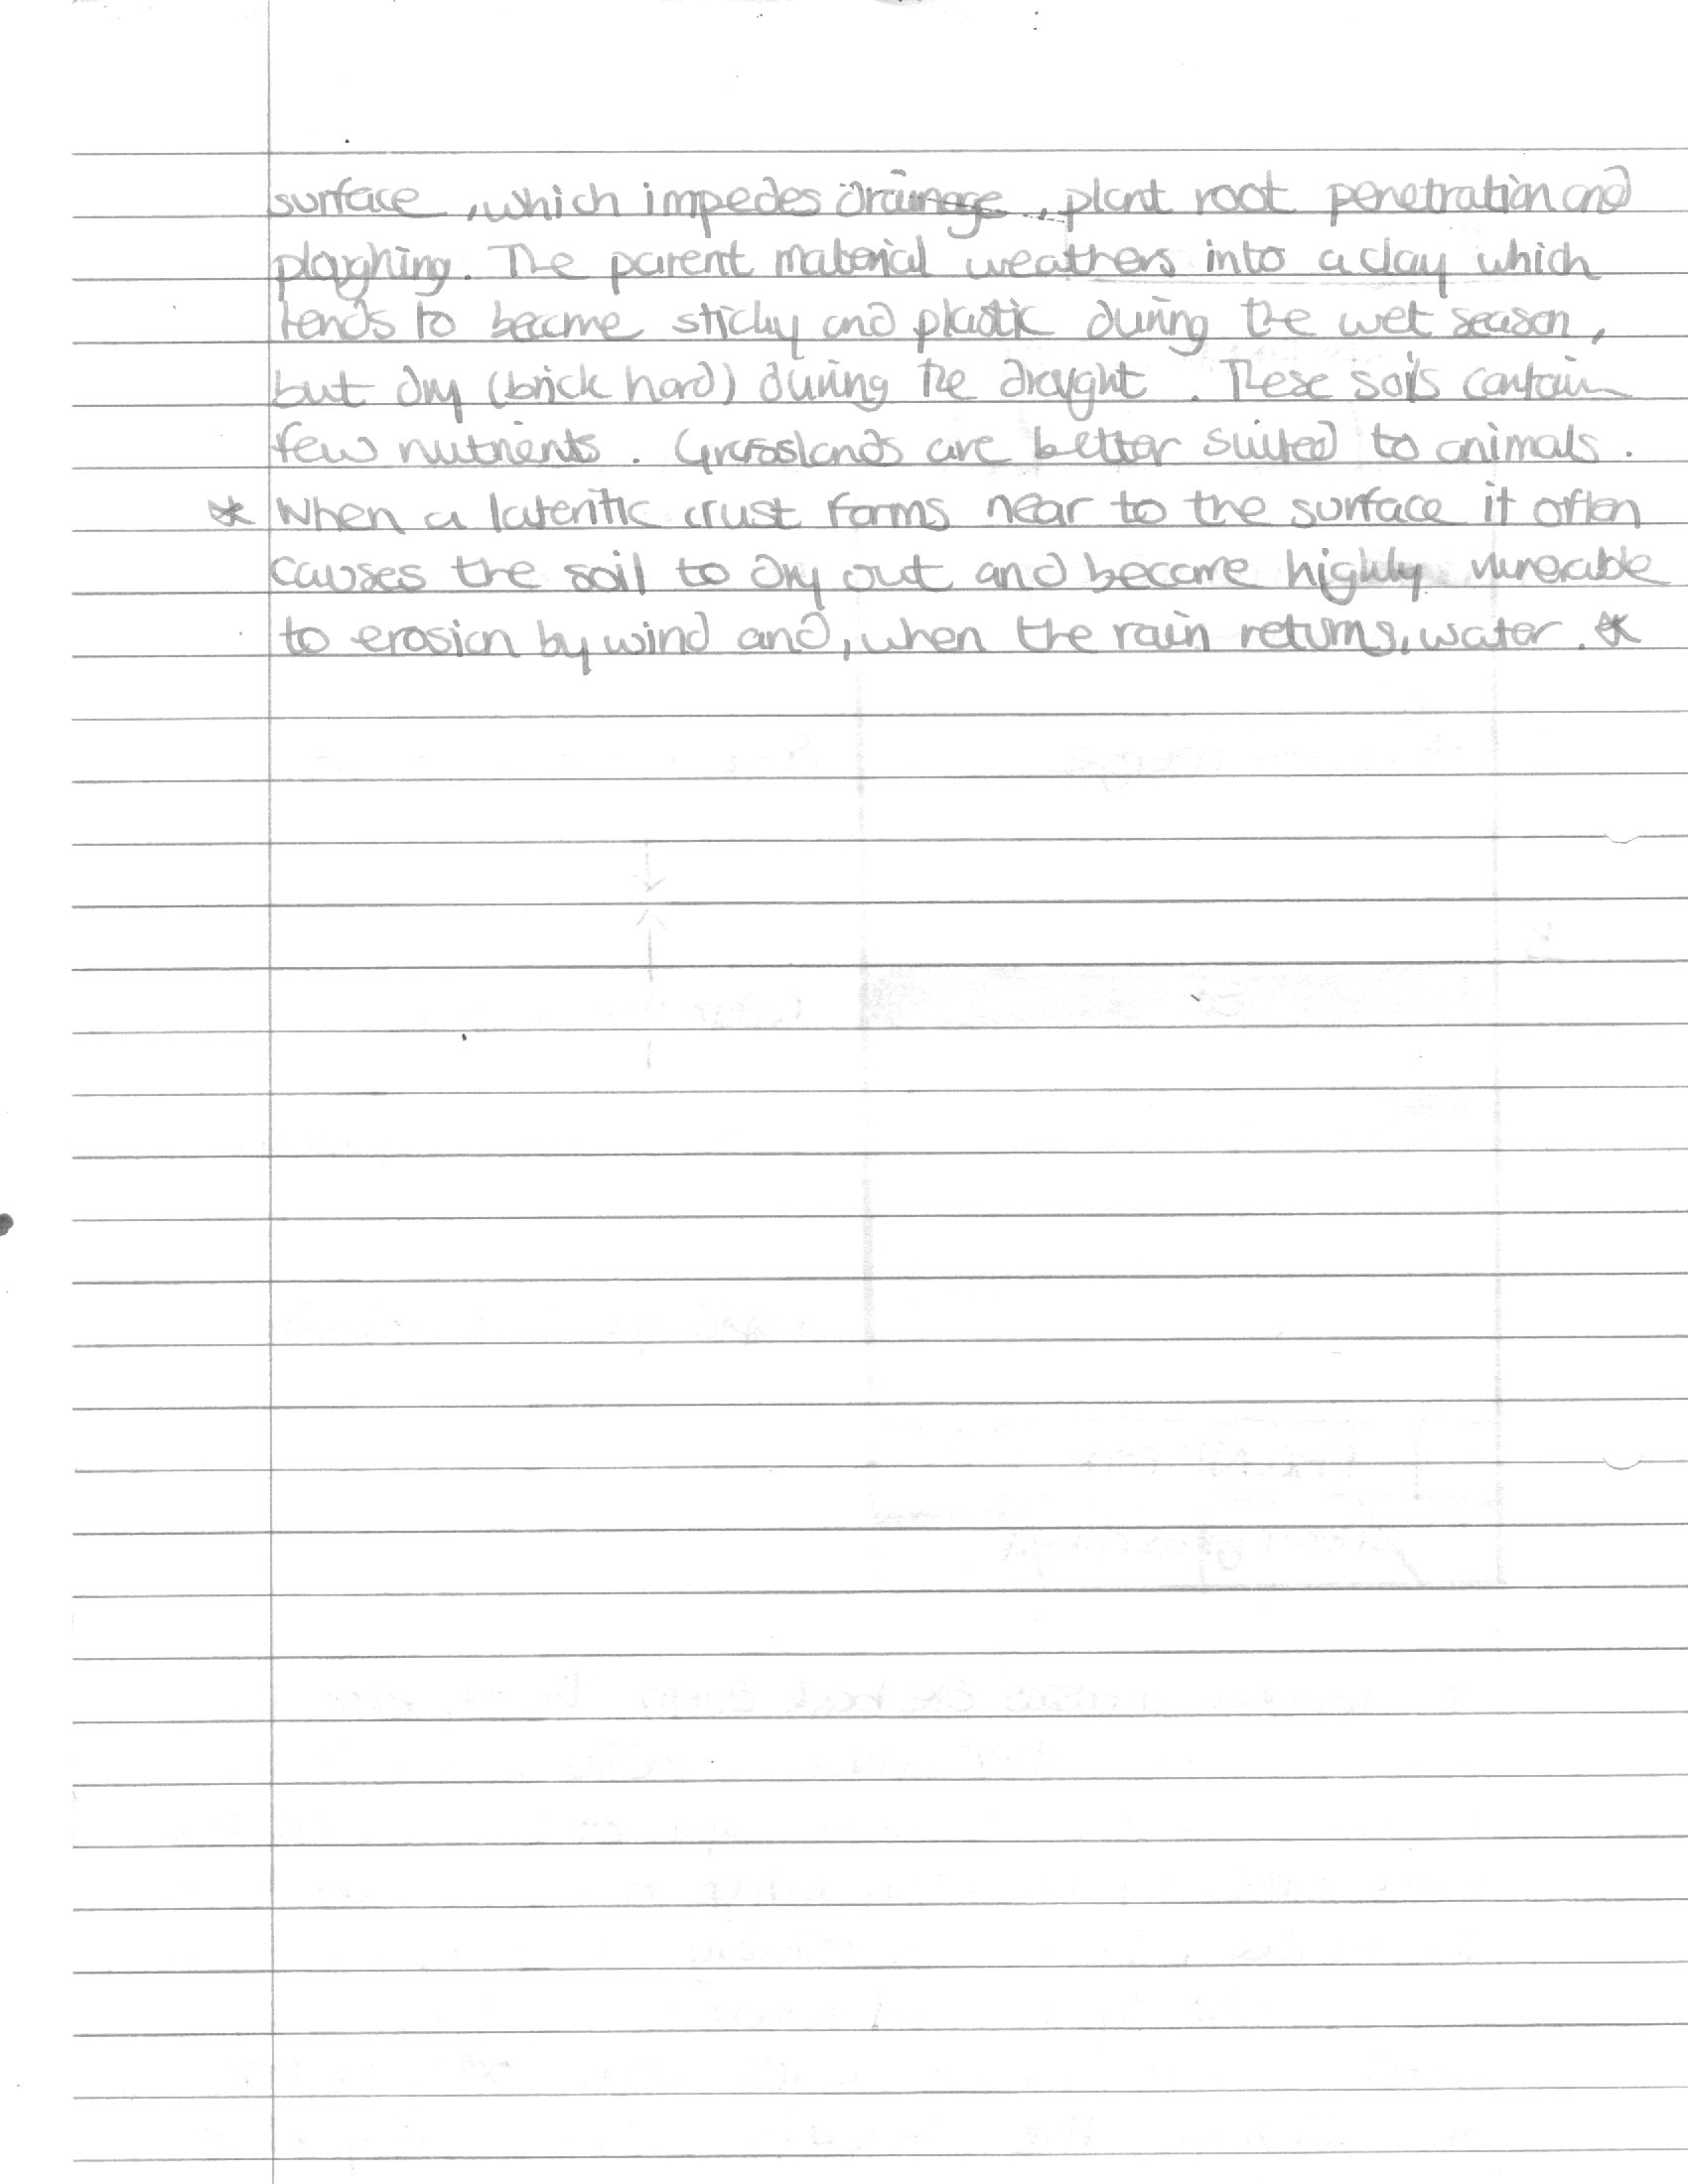 surface, which impedes drainage, plant root penetration and
ploughing. The parent material weathers into a clay which
tends to become sticky and plastic during the wet season,
but dry (brick hard) during the draught. These soils contain
few nutrients. Grasslands are better suited to animals.
* When a lateritic crust forms near to the surface it often
causes the soil to dry out and become highly vunerable
to erosion by wind and, when the rain returns, water. *